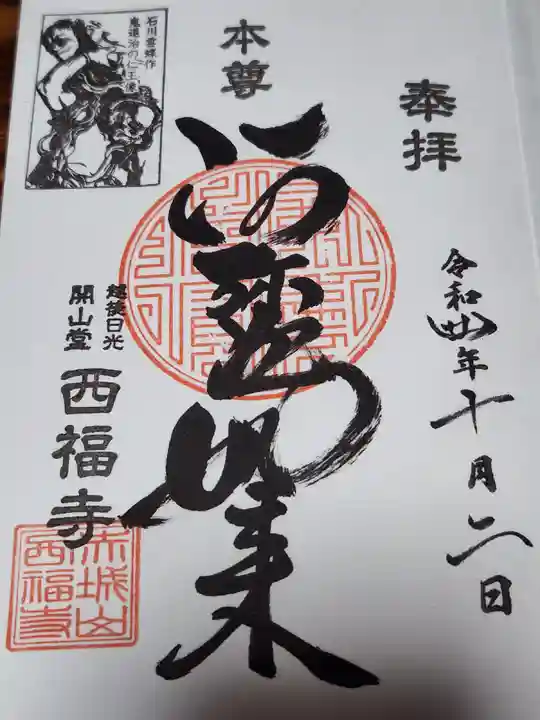 奉拝
令和四年十月六日
本尊
阿弥陀如来
石川雲蝶作
鬼退治の仁王像
越後日光
開山堂
西福寺
赤城山
西福寺